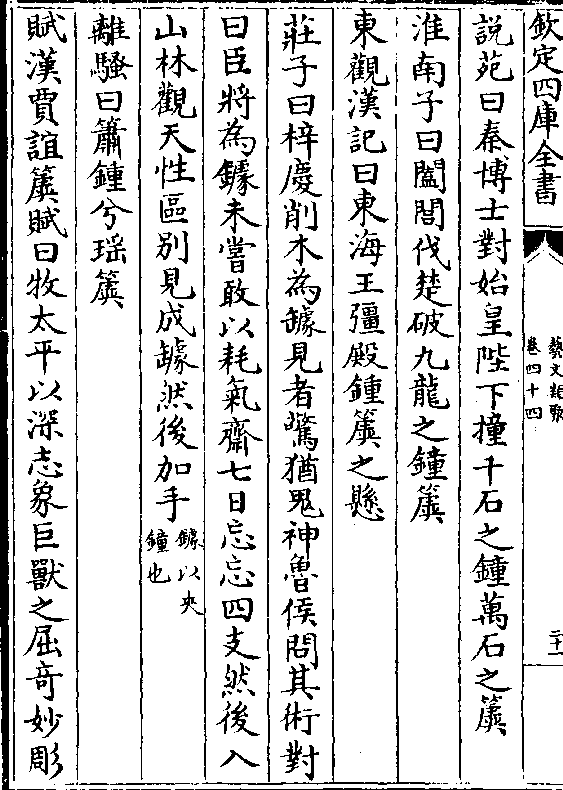 欽定四庫全書
藝文類聚
卷四十四
二十一
說苑曰秦博士對始皇陛下撞千石之鍾萬石之簴
淮南子曰闔閭伐楚破九龍之鐘簴
東觀漢記曰東海王彊殿鍾簴之懸
莊子曰梓慶削木為鐻見者驚猶鬼神魯侯問其術對
曰臣將為鐻未嘗敢以耗氣齋七日忘忘四支然後入
山林觀天性區别見成鐻然後加手鐻以夾鐘也
離騷曰簫鍾兮瑶簴
賦漢賈誼簴賦曰牧太平以深志象巨獸之屈竒妙彫